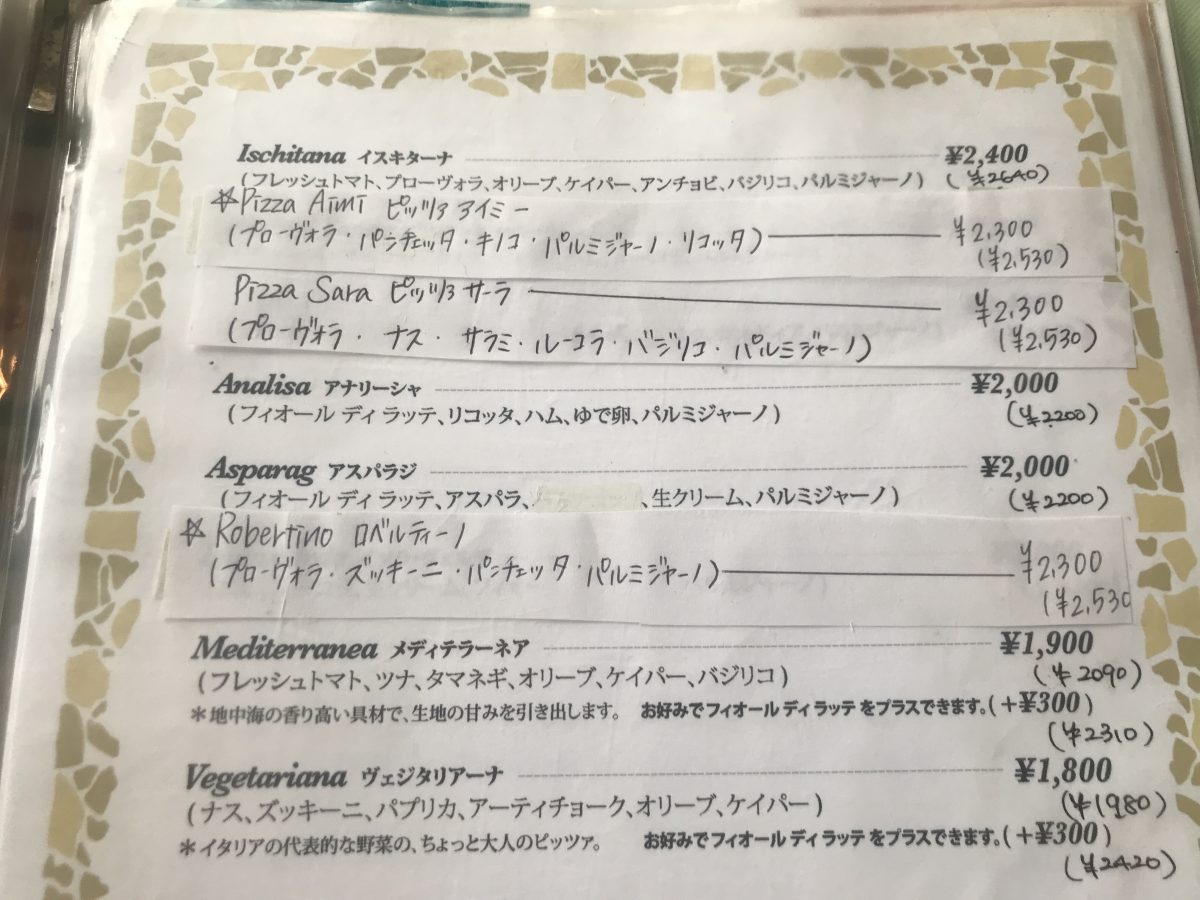 Ischitana イスキターナ ¥2,400
(フレッシュトマト、プローヴォラ、オリーブ、ケイパー、アンチョビ、バジリコ、パルミジャーノ) (¥2640)
☆Pizza Aimi ピッツァ アイミー
(プローヴォラ・パンチェッタ・キノコ・パルミジャーノ・リコッタ) ¥2,300
(¥2,530)
Pizza Sara ピッツァ サーラ ¥2,300
(プローヴォラ・ナス・サラミ・ルーコラ・バジリコ・パルミジャーノ) (¥2,530)
Analisa アナリーシャ ¥2,000
(フィオール ディ ラッテ、リコッタ、ハム、ゆで卵、パルミジャーノ) (¥2200)
Asparag アスパラジ ¥2,000
(フィオール ディ ラッテ、アスパラ、 、生クリーム、パルミジャーノ) (¥2200)
☆Robertino ロベルティーノ
(プローヴォラ・ズッキーニ・パンチェッタ・パルミジャーノ) ¥2,300
(¥2,530
Mediterranea メディテラーネア ¥1,900
(フレッシュトマト、ツナ、タマネギ、オリーブ、ケイパー、バジリコ) (¥2090)
＊地中海の香り高い具材で、生地の甘みを引き出します。 お好みでフィオール ディ ラッテ をプラスできます。(+¥300)
(¥2310)
Vegetariana ヴェジタリアーナ ¥1,800
(ナス、ズッキーニ、パプリカ、アーティチョーク、オリーブ、ケイパー) (¥1980)
＊イタリアの代表的な野菜の、ちょっと大人のピッツァ。 お好みでフィオール ディ ラッテ をプラスできます。(+¥300)
(¥2420)